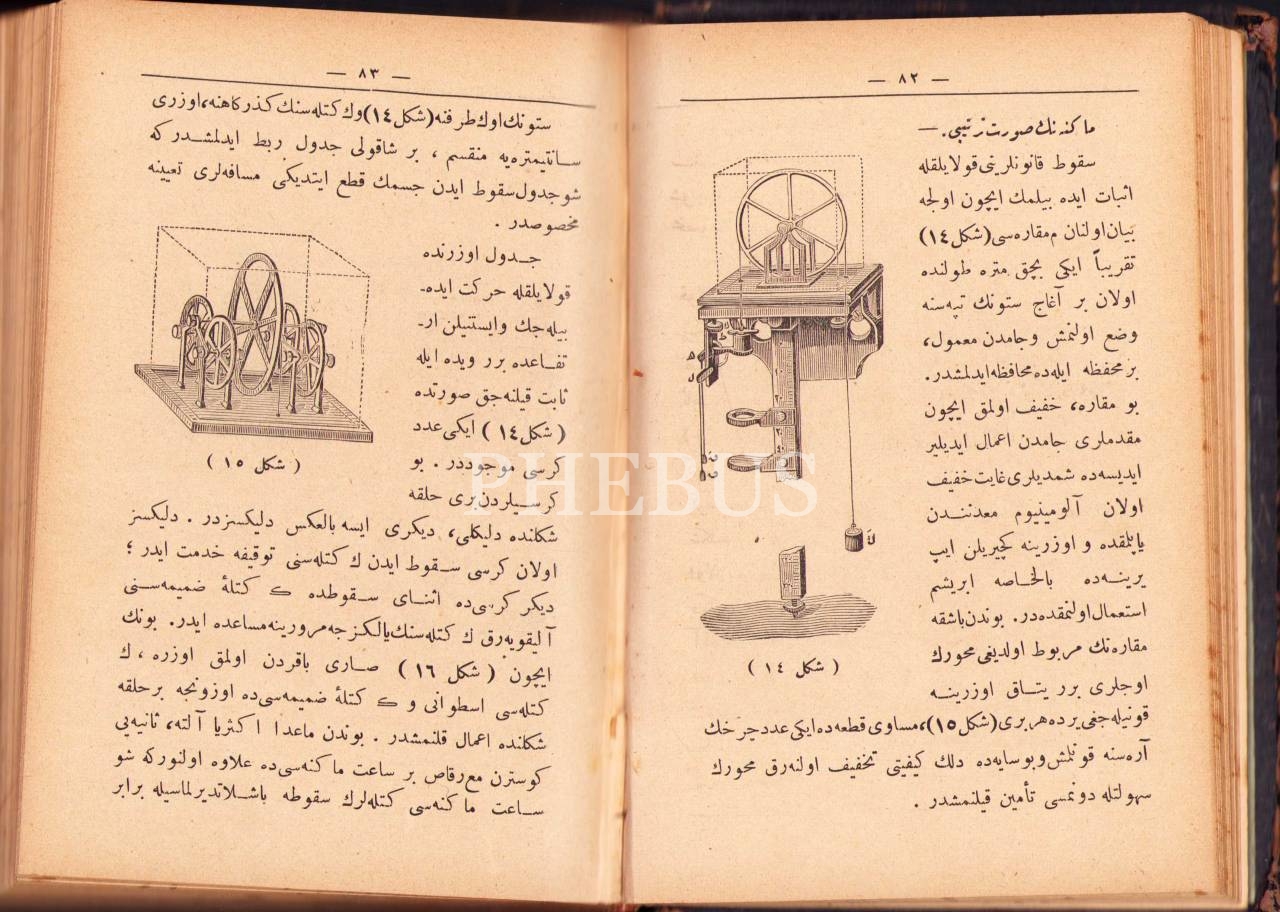 — ٨٢ —
ماكنه‌نك صورت ترتيبى. —
سقوط قانونلرينى قولايلقله
اثبات ايده بيلمك ايچون اولجه
بيان اولنان م مقاره‌سى (شكل ١٤)
تقريباً ايكى بچق متره طولنده
اولان بر آغاج ستونك تپه‌سنه
وضع اولنمش وجامدن معمول،
بر محفظه ايله‌ده محافظه ايدلمشدر.
بو مقاره، خفيف اولمق ايچون
مقدملرى جامدن اعمال ايديلير
ايديسه‌ده شمديلرى غايت خفيف
اولان آلومينيوم معدننـدن
ياپلمقده و اوزرينه كچيريلن ايپ
يرينـه‌ده بالخاصه ابريشم
استعمال اولنمقده‌در. بوندن باشقه
مقاره‌نك مربوط اولديغى محورك
اوجلرى برر يتـاق اوزرينـه
قونيله‌جغى يرده هر برى (شكل ١٥)، مساوى قطعه‌ده ايكى عدد چرخك
آره‌سنه قونلمش وبوسايه‌ده دلك كيفيتى تخفيف اولنه‌رق محورك
سهولتله دونمسى تأمين قيلنمشدر .
ل
( شكل ١٤ )
— ٨٣ —
ستونك اوك طرفنه (شكل ١٤) وك كتله‌سنك كذركاهنه، اوزرى
سـانتيمتره‌يه منقسم ، بر شاقولى جدول ربط ايدلمشـدركه
شو جدول سقوط ايدن جسمك قطع ايتديكى مسافه‌لرى تعيينه
مخصوصدر .
جـدول اوزرنده
قولايلقله حركت ايده‌ـ
بيله‌جك وايستنيلن ارـ
تفـاعده برر ويده ايله
ثابت قيلنه‌جق صورتده
( شكل ١٤ ) ايكى عدد
كرسى موجوددر . بو
كرسـيلردن برى حلقه
شكلنده دليكلى، ديكرى ايسه بالعكس دليكسزدر . دليكسز
اولان كرسى سـقوط ايدن ك كتله‌سنى توقيفه خدمت ايدر ؛
ديكر كرسى‌ده اثنـاى سـقوطده ك كتلهٔ ضميمه‌سـنى
آليقويه‌رق ك كتله‌سنك يالكزجه مرورينه مساعده ايدر. بونك
ايچون ( شكل ١٦ ) صـارى باقردن اولمق اوزره ، ك
كتله‌سى اسطوانى و ك كتلهٔ ضميمه‌سى‌ده اوزونجه برحلقه
شكلنده اعمال قلنمشدر . بوندن ماعدا اكثريا آلته، ثانيه‌يى
كوسترن مع رقاص بر ساعت ماكنه‌سى‌ده علاوه اولنوركه شو
سـاعت ماكنه‌سى كتله‌لرك سقوطه باشـلاتديرلماسيله برابر
( شكل ١٥ )
PHEBUS